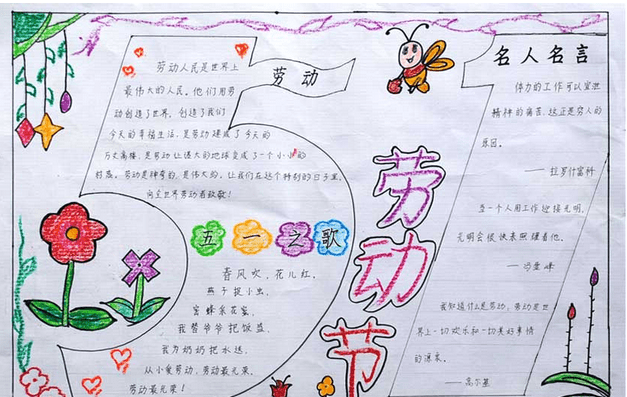 劳动
劳动人民是世界上
最伟大的人民。他们用劳
动创造了世界。创造了我们
今天的幸福生活,是劳动建成了今天的
万丈高楼,是劳动让偌大的地球变成了一个小小的
村庄。劳动是神圣的,是伟大的。让我们在这个特别的日子里,
向全世界劳动者致敬!
五一之歌
春风吹,花儿红,
燕子捉小虫,
蜜蜂采花蜜,
我帮爷爷把饭盛
我为奶奶把水送
从小爱劳动,劳动最光荣,
劳动最光荣!
劳动节
名人名言
体力的工作可以
精神的痛苦,这正是穷人的
原因。
——拉罗什富科
当一个人用工作迎接光明,
光明会很快来照耀着他。
——冯学峰
我知道什么是劳动,劳动是世
界上一切欢乐和一切美好事情
的源泉。
——高尔基